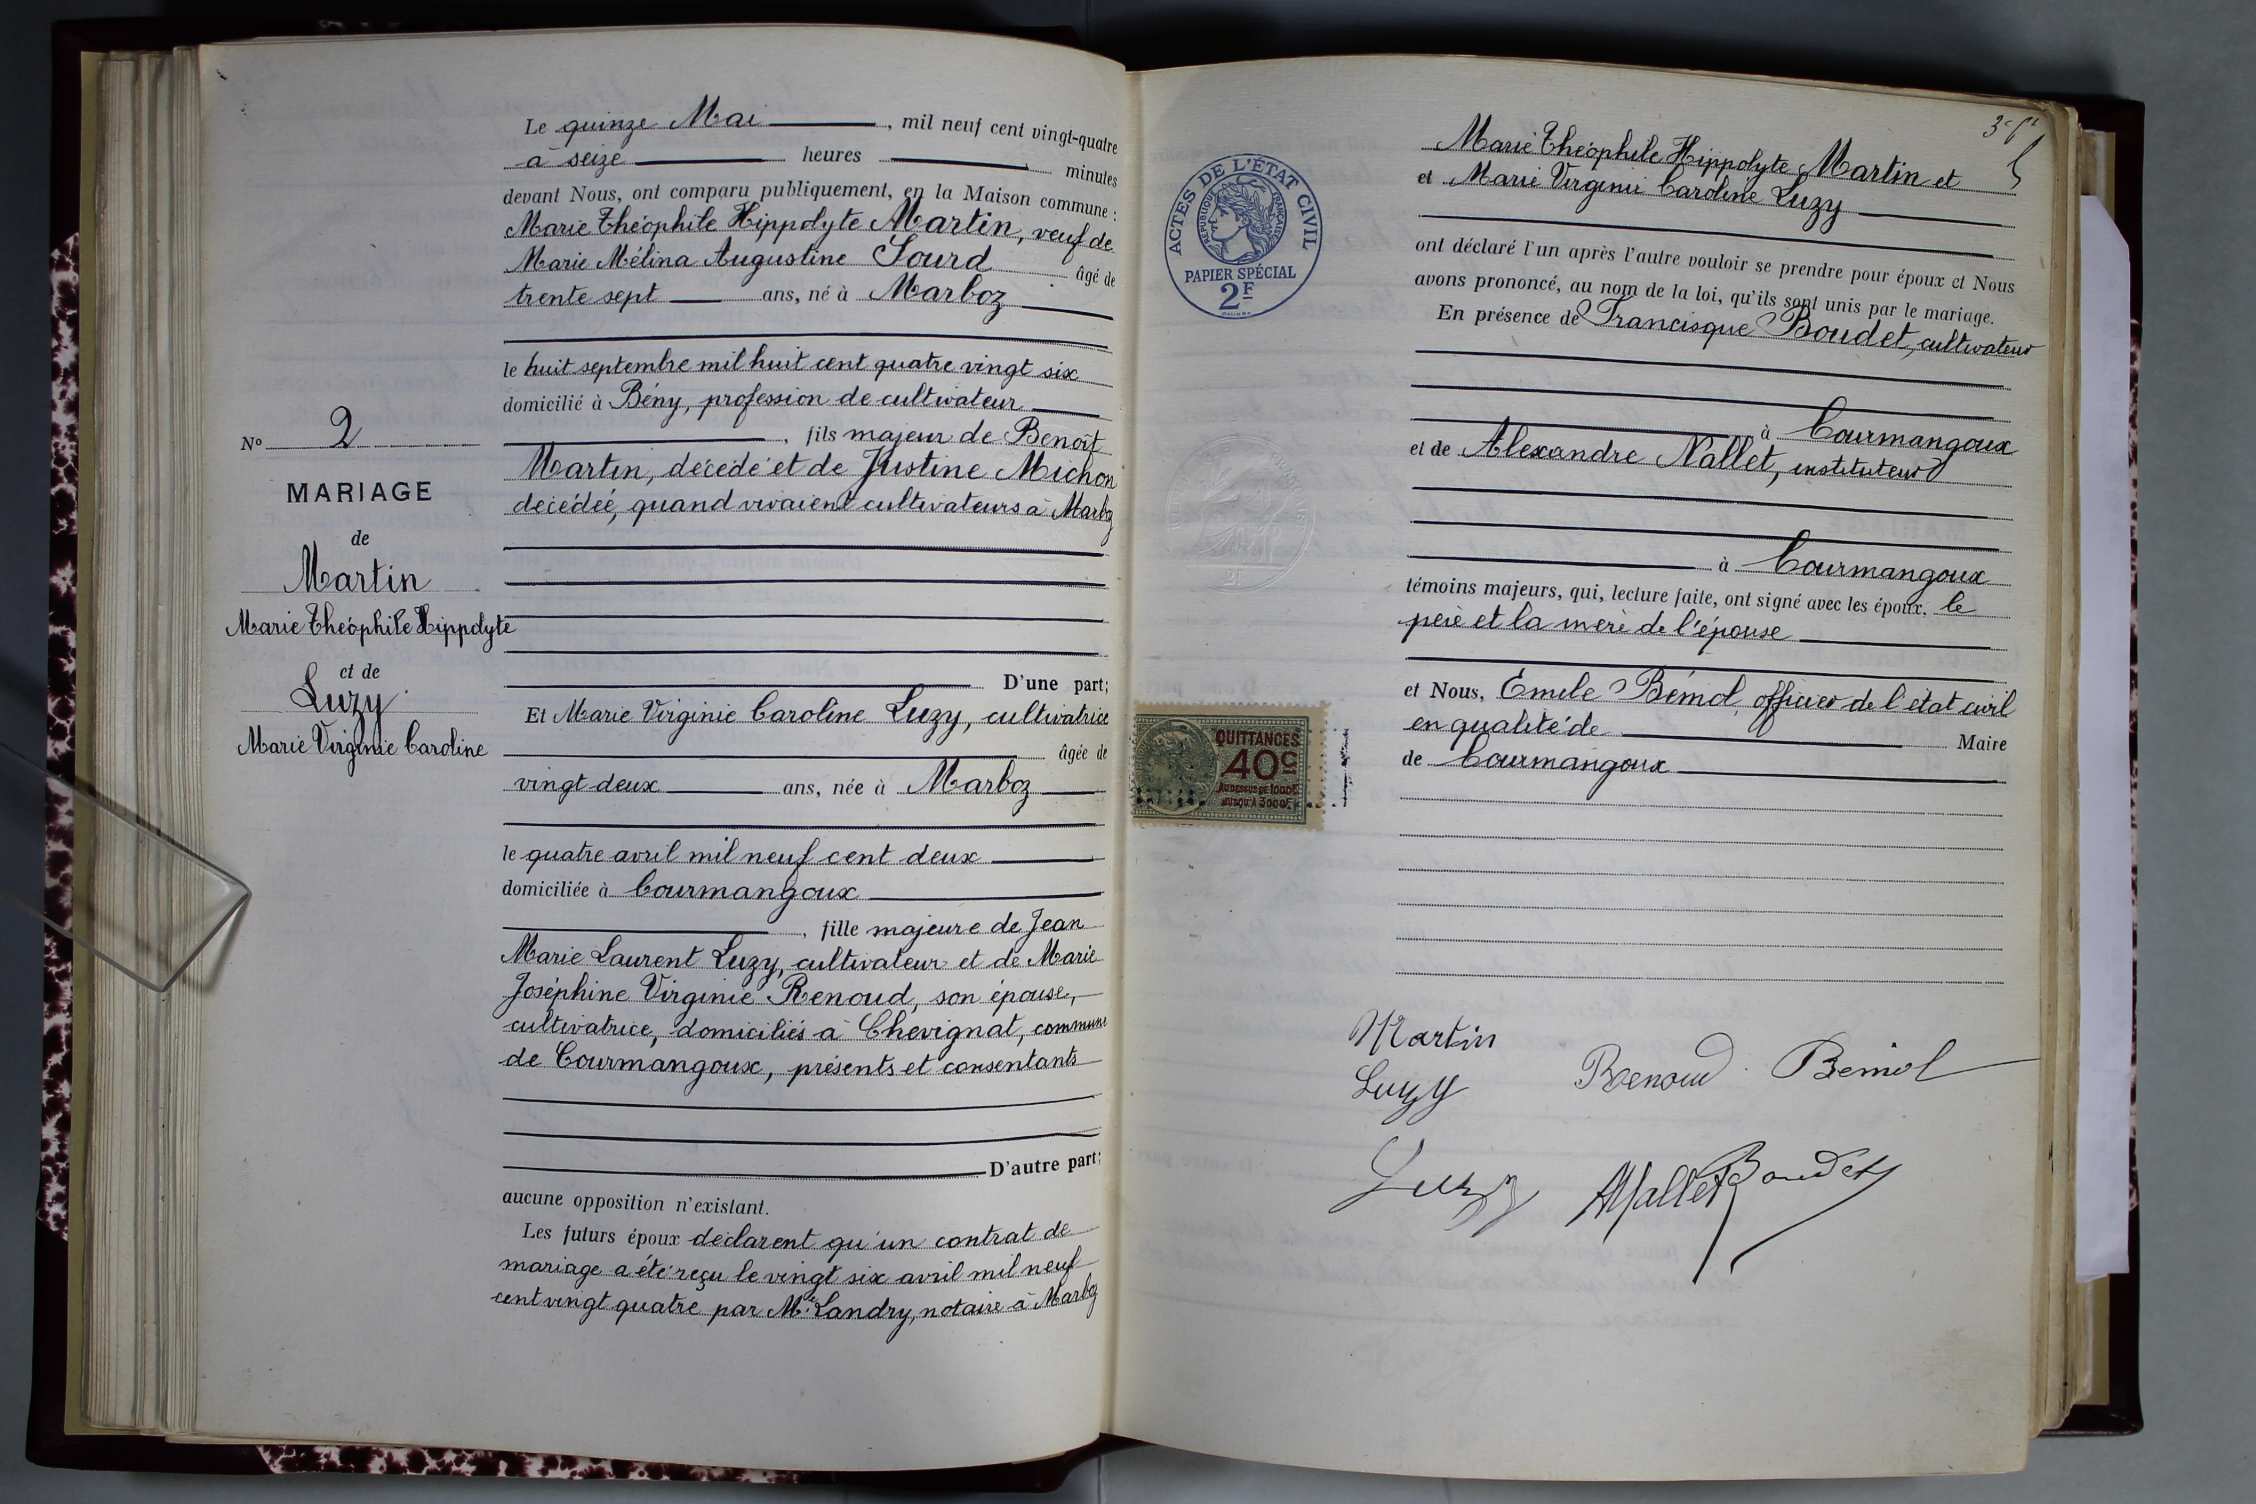 N° 2
MARIAGE
de
Martin
Marie Théophile Hippolyte
et de
Luzy
Marie Virginie Caroline
Le quinze Mai, mil neuf cent vingt-quatre
à seize heures minutes
devant Nous, ont comparu publiquement, en la Maison commune :
Marie Théophile Hippolyte Martin, veuf de
Marie Mélina Augustine Sourd âgé de
trente sept ans, né à Marboz
le huit septembre mil huit cent quatre vingt six
domicilié à Bény, profession de cultivateur
, fils majeur de Benoît
Martin, décédé et de Justine Michon
décédée, quand vivaient cultivateurs à Marboz
D'une part;
Et Marie Virginie Caroline Luzy, cultivatrice
âgée de
vingt deux ans, née à Marboz
le quatre avril mil neuf cent deux
domiciliée à Courmangoux
, fille majeure de Jean
Marie Laurent Luzy, cultivateur et de Marie
Joséphine Virginie Renoud, son épouse,
cultivatrice, domiciliés à Chevignat, commune
de Courmangoux, présents et consentants
D'autre part;
aucune opposition n'existant.
Les futurs époux déclarent qu'un contrat de
mariage a été reçu le vingt six avril mil neuf
cent vingt quatre par Me Landry, notaire à Marboz
ACTES DE L'ÉTAT CIVIL
RÉPUBLIQUE FRANÇAISE
PAPIER SPÉCIAL
2F
QUITTANCES
40c
AU DESSUS DE 1000F
JUSQU'À 3000F
Marie Théophile Hippolyte Martin et
et Marie Virginie Caroline Luzy
ont déclaré l'un après l'autre vouloir se prendre pour époux et Nous
avons prononcé, au nom de la loi, qu'ils sont unis par le mariage.
En présence de Francisque Boudet, cultivateur
à Courmangoux
et de Alexandre Nallet, instituteur
à Courmangoux
témoins majeurs, qui, lecture faite, ont signé avec les époux, le
père et la mère de l'épouse
et Nous, Émile Bémol, officier de l'état civil
en qualité de Maire
de Courmangoux
Martin
Luzy Renoud Bémol
Luzy ANallet Boudet